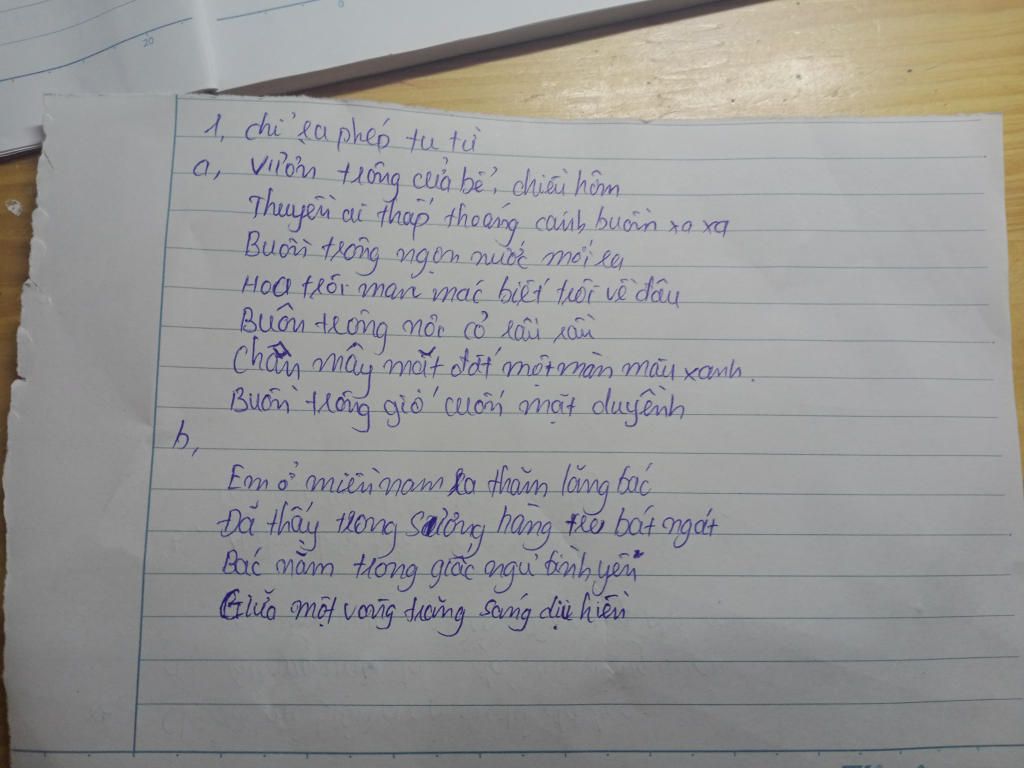 1, chỉ ra phép tu từ
a, Vườn trông cửa bể, chiều hôm
Thuyền ai thấp thoáng cánh buồm xa xa
Buồn trông ngọn nước mới ra
Hoa trôi man mác biết trôi về đâu
Buồn trông nôi cỏ rầu rầu
Chân mây mắt đất một màn màu xanh.
Buồn trông gió cuốn mặt duyềnh
b,
Em ở miền nam ra thăm lăng bác
Đã thấy trong sương hàng tre bát ngát
Bác nằm trong giấc ngủ bình yên
Giữa một vầng trăng sáng dịu hiền
20